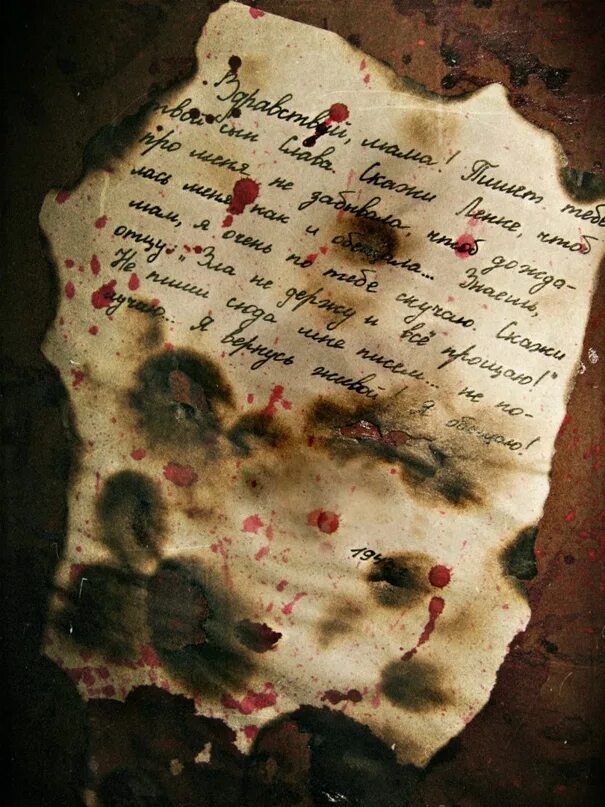 Здравствуй, мама! Пишет тебе
твой сын Слава. Скажи Ленке, чтоб
про меня не забывала, чтоб дожда-
лась меня, как и обещала... Знаешь,
мам, я очень по тебе скучаю. Скажи
отцу: "Зла не держу и всё прощаю!"
Не пиши сюда мне писем... не по-
лучаю... Я вернусь живой! Я обещаю!
194